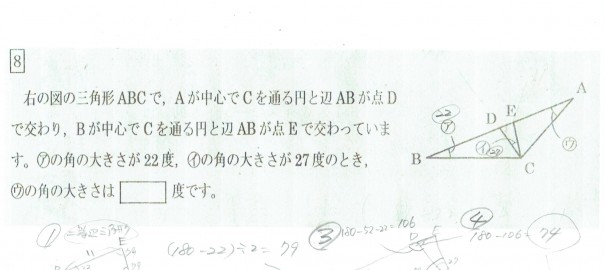 8
右の図の三角形ABCで，Aが中心でCを通る円と辺ABが点D
で交わり，Bが中心でCを通る円と辺ABが点Eで交わっていま
す。㋐の角の大きさが22度，㋑の角の大きさが27度のとき，
㋒の角の大きさは 度です。
A
E
D
22
㋐
㋒
㋑ 27
B
C
① 二等辺三角形
(180-22)÷2= 79
③ 180-52-22=106
④
180-106= 74
E